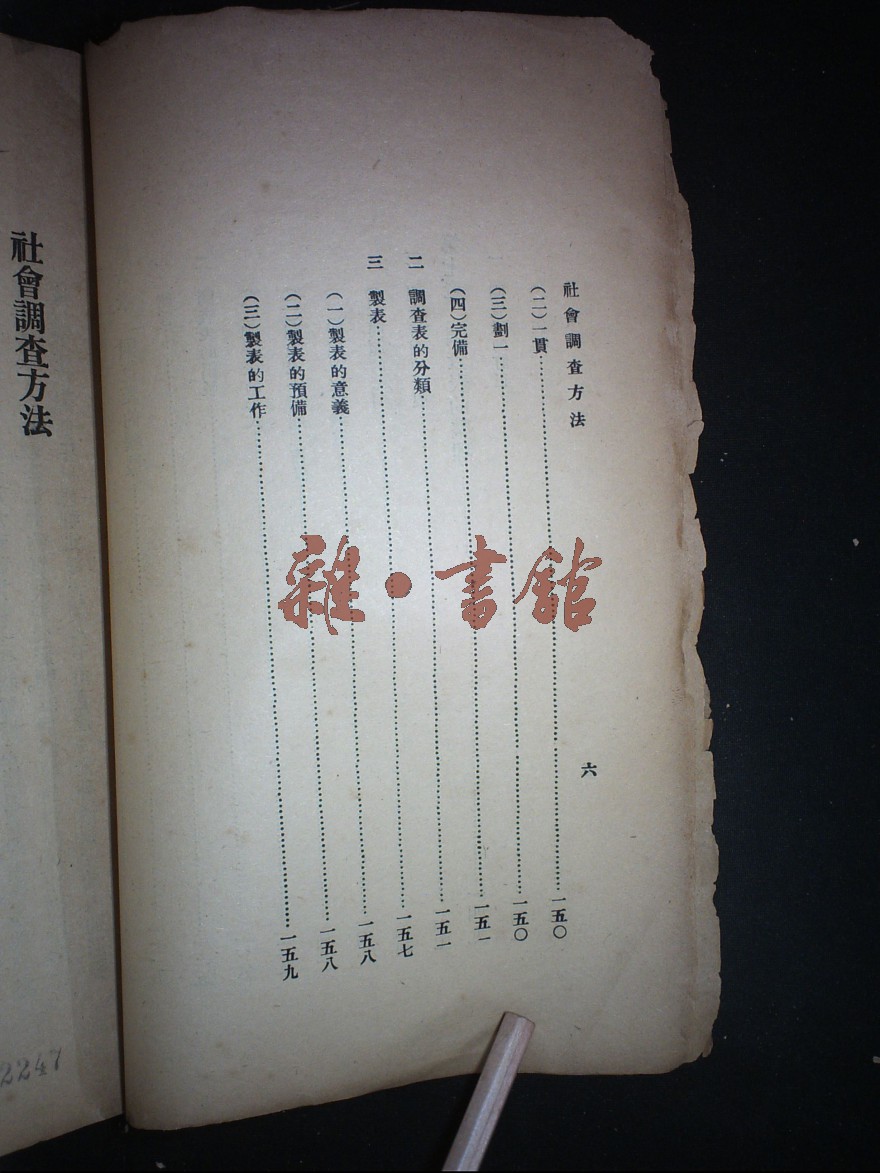 社會調查方法
六
（二）一貫……一五〇
（三）劃一……一五〇
（四）完備……一五一
二　調查表的分類……一五一
三　製表……一五七
（一）製表的意義……一五八
（二）製表的預備……一五八
（三）製表的工作……一五九
社會調查方法
2247
雜·書館